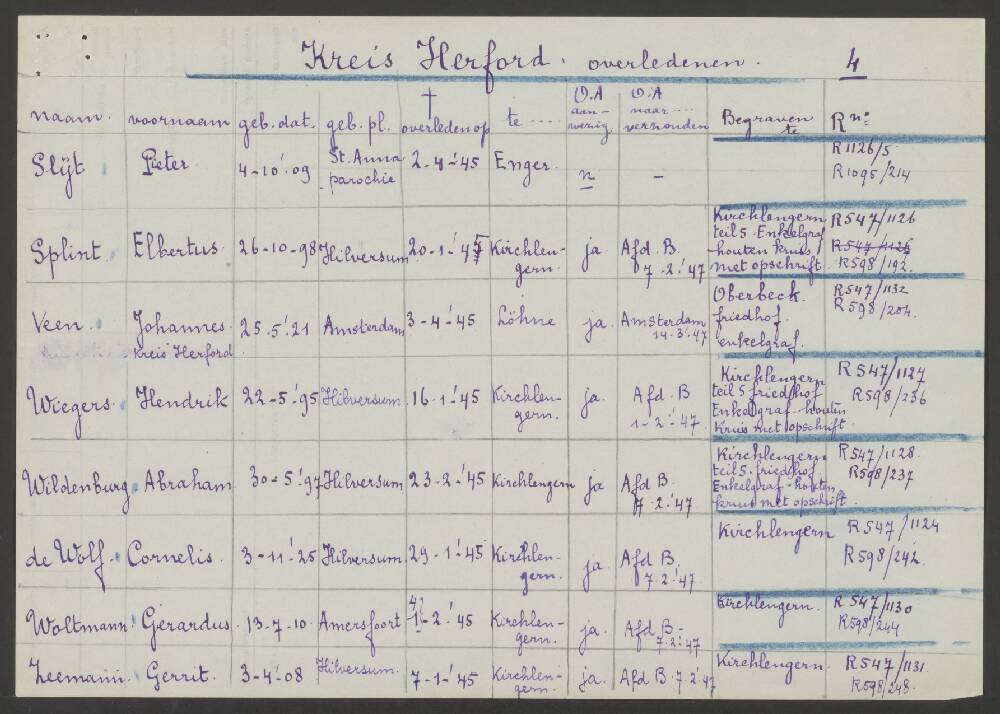 Kreis Herford. overledenen. 4
naam. voornaam geb. dat. geb. pl. † overleden op te .... O.A aan-wezig O.A naar .... verzonden Begraven te R nº
Slijt Pieter 4-10-'09 St. Anna parochie 2-4-'45 Enger n - R1126/5 R1095/214
Splint Elbertus 26-10-98 Hilversum 20-1-'45 Kirchlen-gern. ja Afd. B. 7-2-'47 Kirchlengern teil 5. Enkelgraf houten kruis met opschrift R547/1126 R547/1126 R598/192.
Veen. Johannes. Kreis Herford 25-5-'21 Amsterdam 3-4-'45 Löhne ja. Amsterdam 14-3-'47 Oberbeck. friedhof. enkelgraf. R547/1132 R598/204.
Wiegers Hendrik 22-5-'95 Hilversum 16-1-'45 Kirchlen-gern. ja. Afd. B 1-2-'47 Kirchlengern teil 5 friedhof Enkelgraf-houten Kruis met opschrift R547/1127 R598/236
Wildenburg Abraham 30-5-'97 Hilversum 23-2-'45 Kirchlengern ja Afd B. 7-2-'47 Kirchlengern teil 5. friedhof Enkelgraf-houten kruis met opschrift. R547/1128. R598/237
de Wolf. Cornelis. 3-11-'25 Hilversum 29-1-'45 Kirchlen-gern. ja. Afd B. 7-2-'47 Kirchlengern R547/1124 R598/242.
Woltmann Gerardus. 13-7-10. Amersfoort 4/ 1-2-'45 Kirchlen-gern. ja. Afd B- 7-2-'47 Kirchlengern. R547/1130 R598/244
Zeemann. Gerrit. 3-4-'08 Hilversum. 7-1-'45 Kirchlen-gern. ja. Afd B. 7-2-'47 Kirchlengern. R547/1131. R598/248.